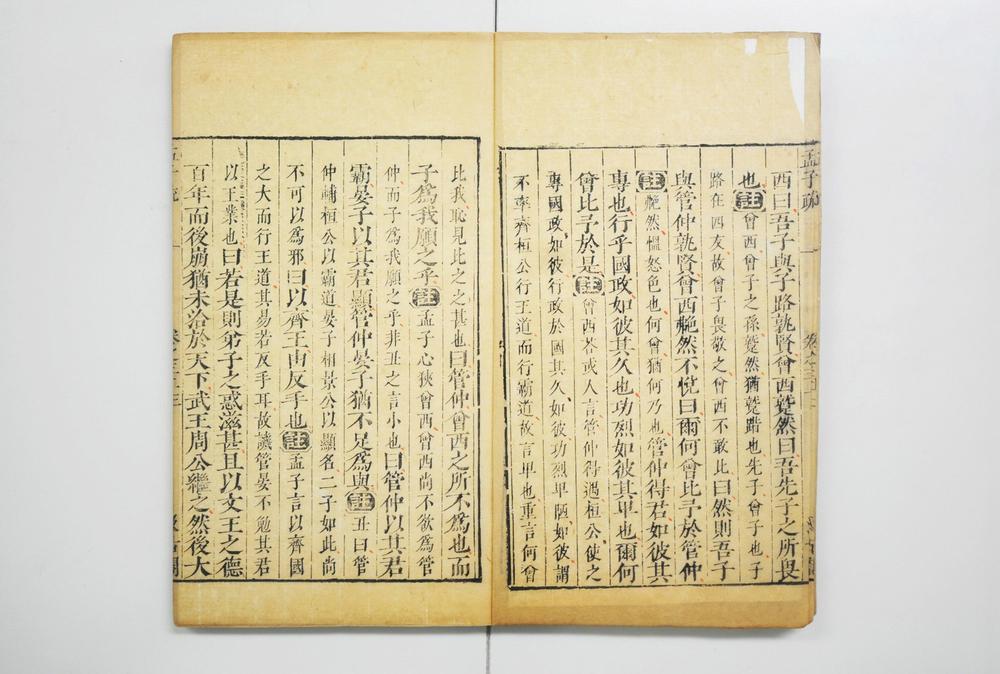 孟子疏
西曰吾子與子路孰賢曾西蹵然曰吾先子之所畏
也註曾西曾子之孫蹵然猶蹵踖也先子曾子也子
路在四友故曾子畏敬之曾西不敢比曰然則吾子
與管仲孰賢曾西艴然不悅曰爾何曾比予於管仲
註艴然慍怒色也何曾猶何乃也管仲得君如彼其
專也行乎國政如彼其久也功烈如彼其卑也爾何
曾比予於是註曾西荅或人言管仲得遇桓公使之
專國政如彼行政於國其久如彼功烈卑陋如彼謂
不率齊桓公行王道而行霸道故言卑也重言何曾
比我恥見比之之甚也曰管仲曾西之所不為也而
子為我願之乎註孟子心狹曾西曾西尚不欲為管
仲而子為我願之乎非丑之言小也曰管仲以其君
霸晏子以其君顯管仲晏子猶不足為與註丑曰管
仲輔桓公以霸道晏子相景公以顯名二子如此尚
不可以為邪曰以齊王由反手也註孟子言以齊國
之大而行王道其易若反手耳故譏管晏不勉其君
以王業也曰若是則弟子之惑滋甚且以文王之德
百年而後崩猶未洽於天下武王周公繼之然後大